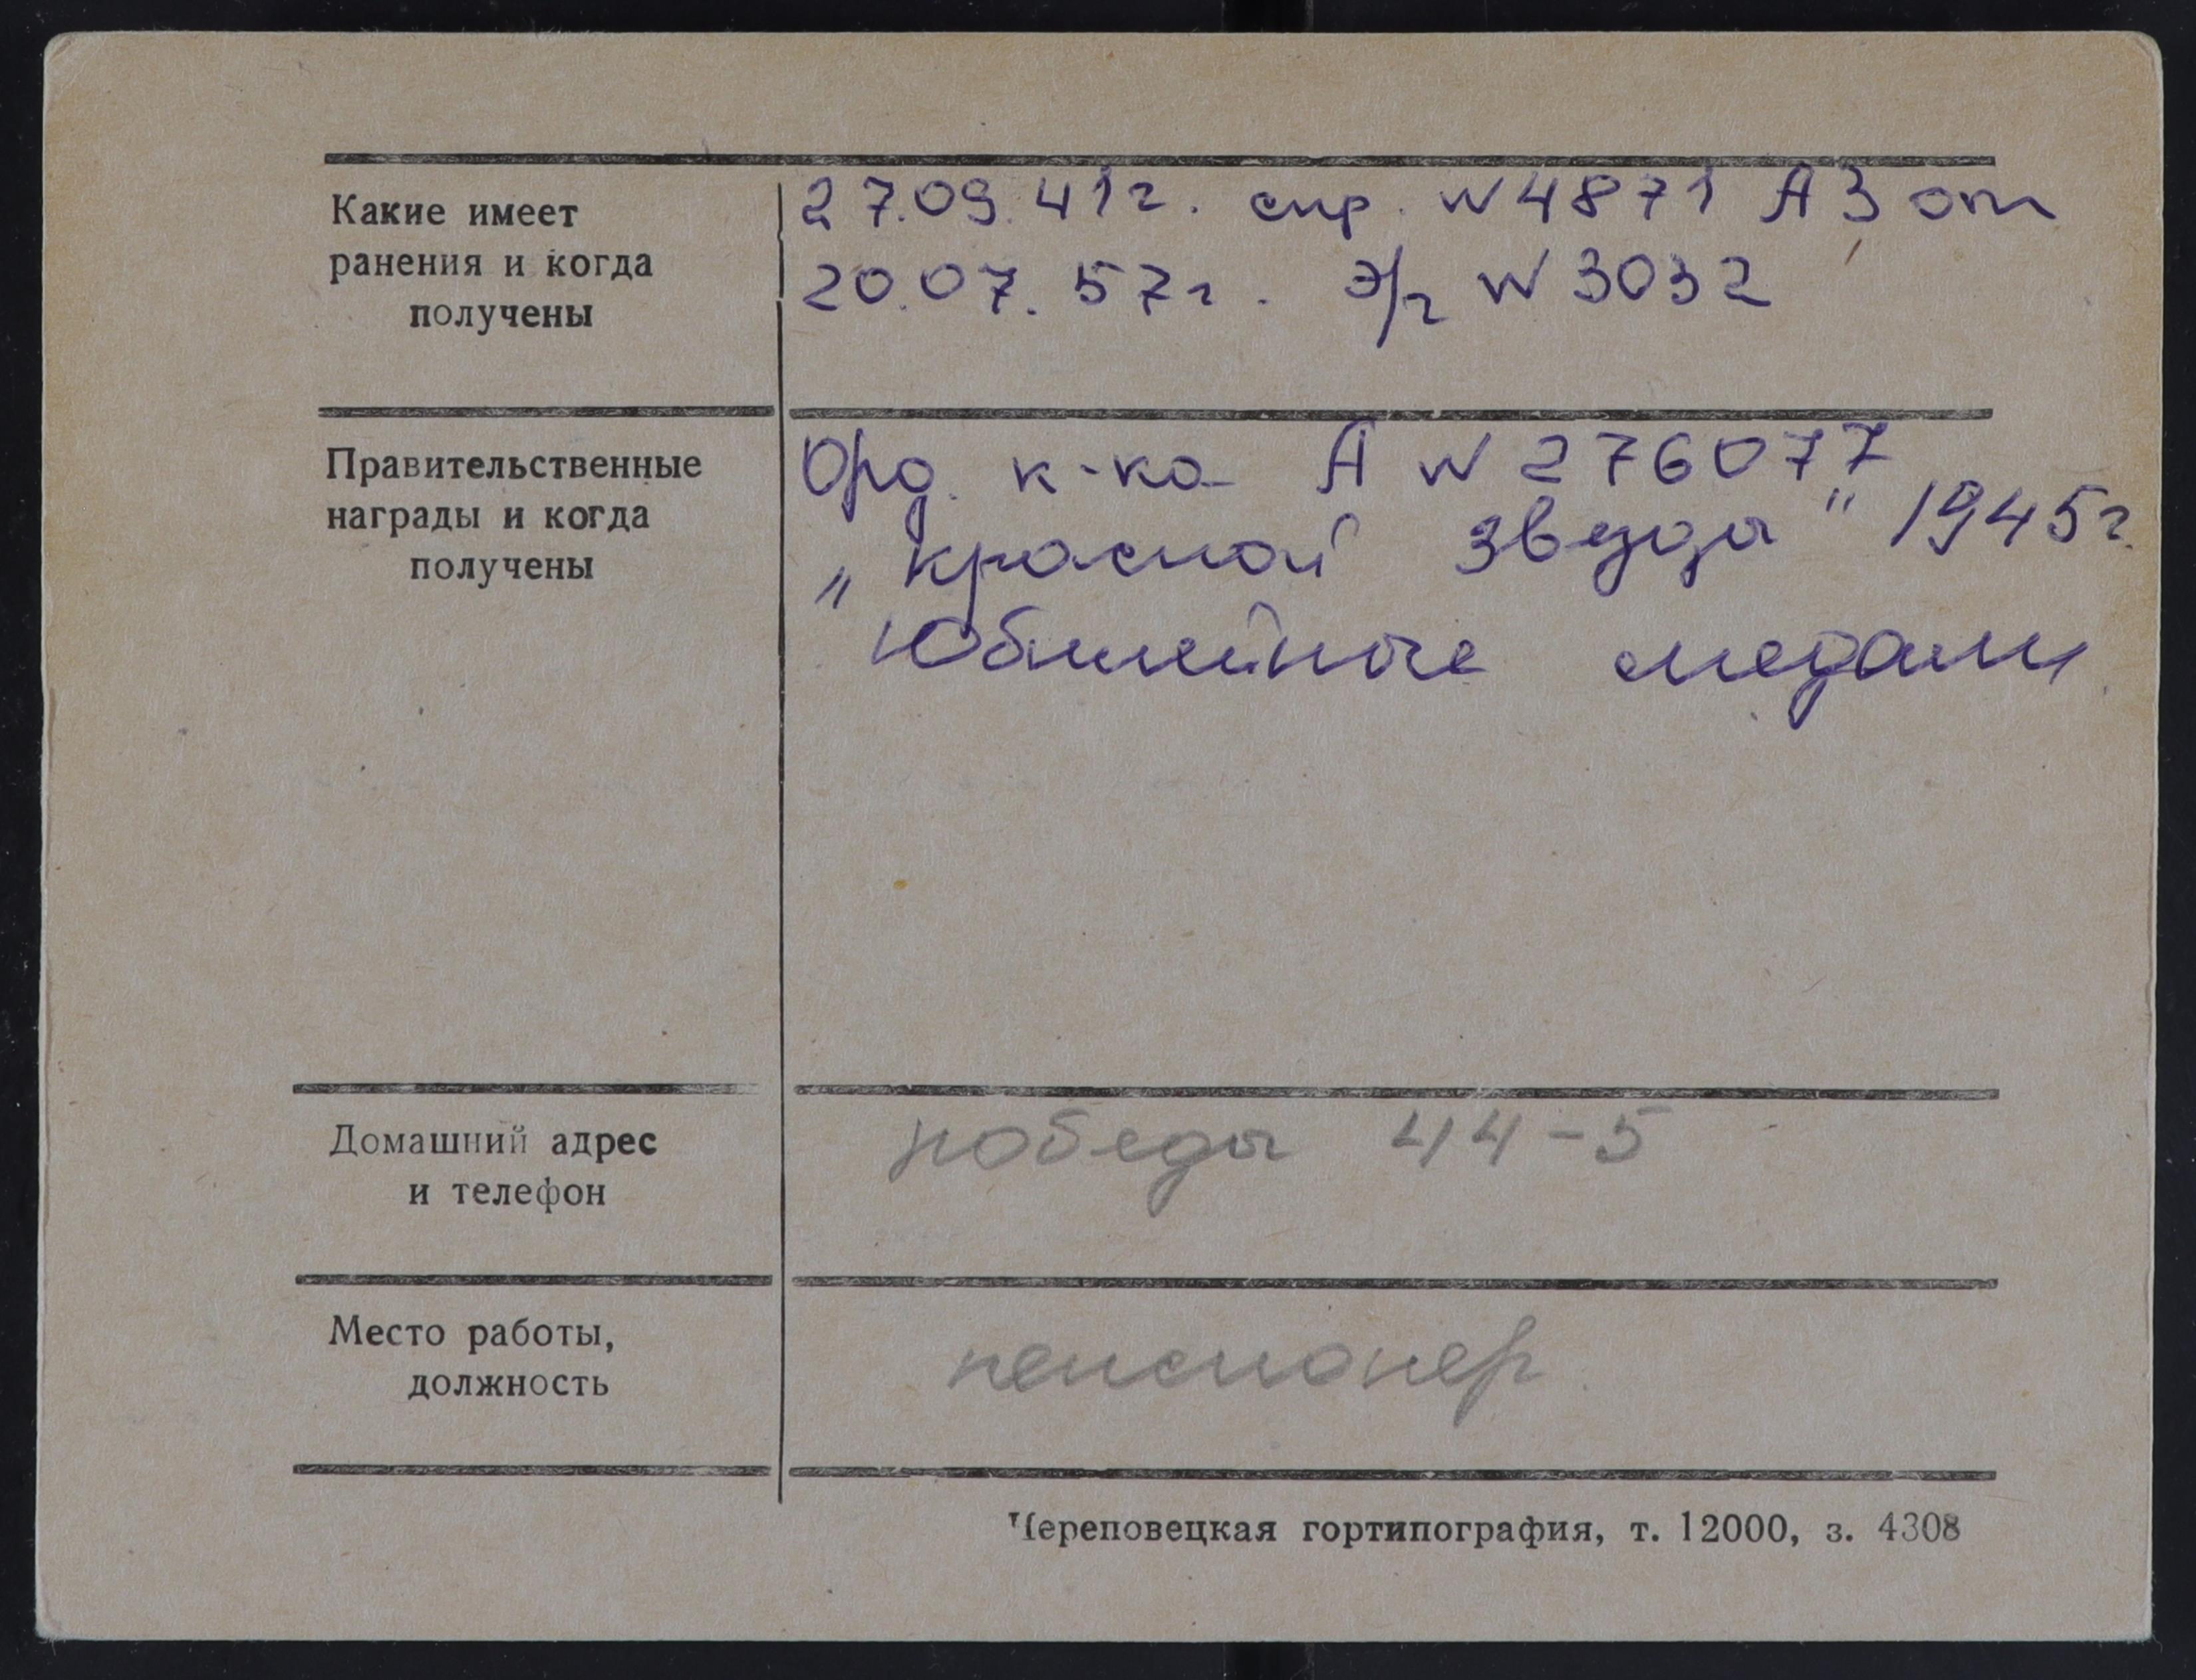 Какие имеет
ранения и когда
получены
27.09.41г. спр. N 4871 АЗ от
20.07.57г. э/г N 3032
Правительственные
награды и когда
получены
Орд. к-ка А N 276077
„Красной звезды" 1945г.
Юбилейные медали
Домашний адрес
и телефон
победы 44-5
Место работы,
должность
пенсионер.
Череповецкая гортипография, т. 12000, з. 4308